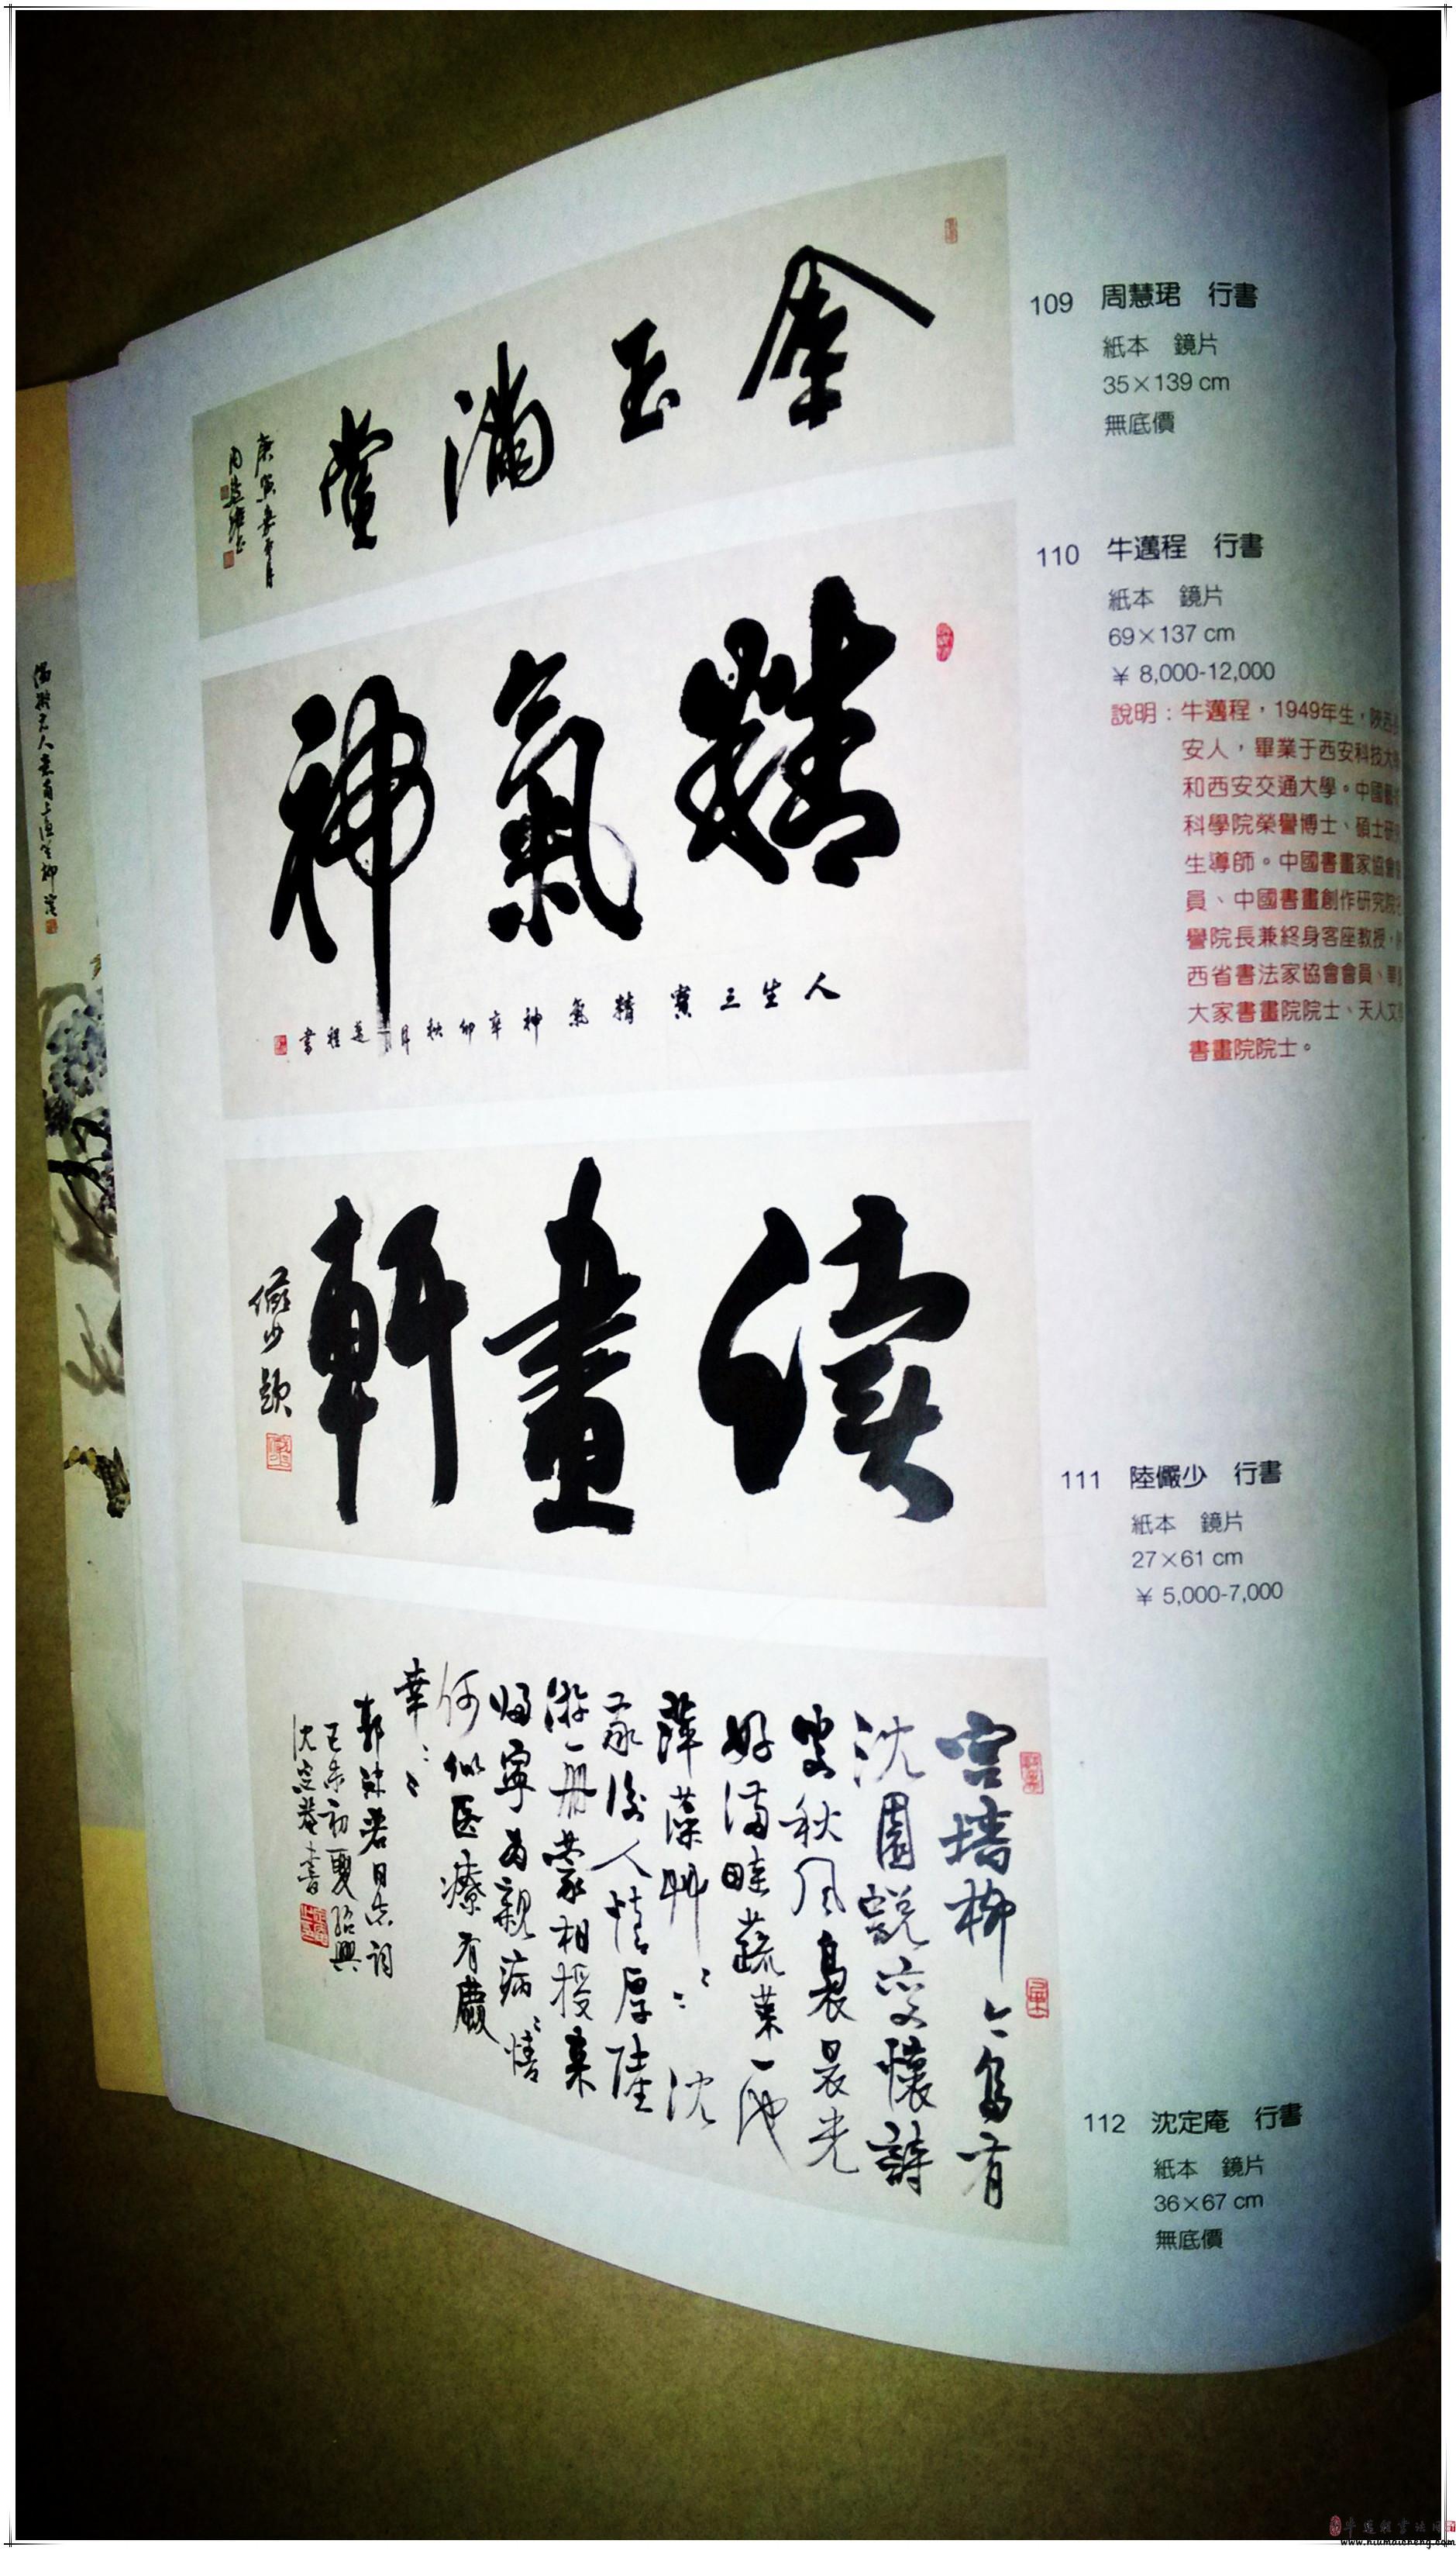 金玉滿堂
庚寅嘉平月
周慧珺書
109 周慧珺 行書
紙本 鏡片
35×139 cm
無底價
精氣神
人生三寶精氣神辛卯秋月邁程書
110 牛邁程 行書
紙本 鏡片
69×137 cm
¥ 8,000-12,000
說明：牛邁程，1949年生，陝西
安人，畢業于西安科技大
和西安交通大學。中國藝
科學院榮譽博士、碩士研
生導師。中國書畫家協會
員、中國書畫創作研究院
譽院長兼終身客座教授，
西省書法家協會會員、
大家書畫院院士、天人文
書畫院院士。
读畫軒
儼少題
111 陸儼少 行書
紙本 鏡片
27×61 cm
¥ 5,000-7,000
宮墙柳今烏有
沈園蛻变懷詩
叟秋风裊晨光
好满畦蔬菜一池
萍藻艸〻沈
家後人情厚陸
游一册蒙相授来
归寧为親病〻情
何似医療有
幸〻〻
郭沫若同志詞
己未初夏紹興
沈定菴書
112 沈定庵 行書
紙本 鏡片
36×67 cm
無底價
www.niumaicheng.com